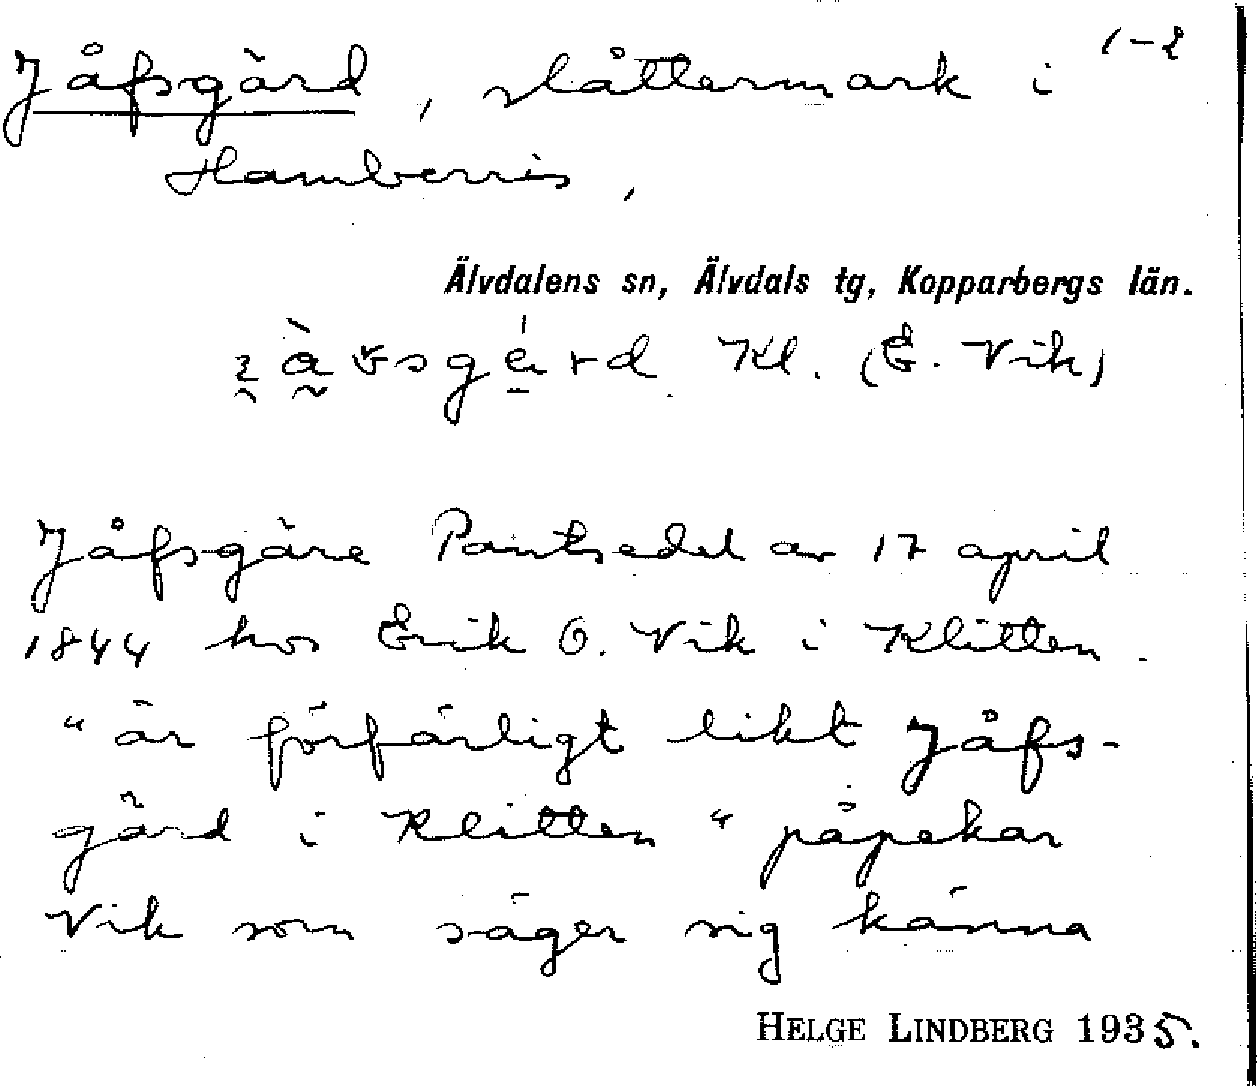 1-2
Jåfsgärd, slåttermark i
Hambernis,
Älvdalens sn, Älvdals tg, Kopparbergs län.
Kl. (E. Vik)
Jåfsgäre Pantsedel av 17 april
1844 hos Erik O. Vik i Klitten.
"är förfärligt likt Jåfs-
gärd i Klitten" påpekar
Vik som säger sig känna
HELGE LINDBERG 1935.